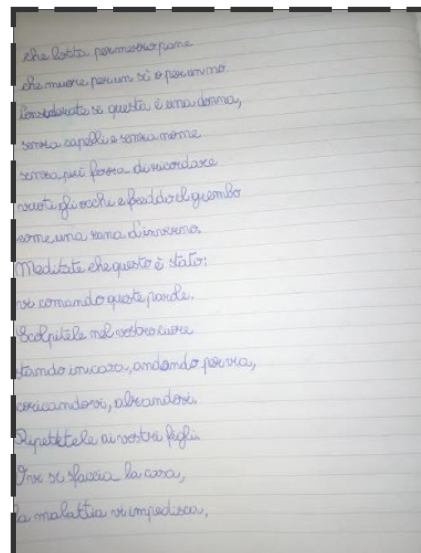 che lotta per mezzo pane
che muore per un sì o per un no.
Considerate se questa è una donna,
senza capelli e senza nome
senza più forza di ricordare
vuoti gli occhi e freddo il grembo
come una rana d'inverno.
Meditate che questo è stato:
vi comando queste parole.
Scolpitele nel vostro cuore
stando in casa, andando per via,
coricandovi, alzandovi.
Ripetetele ai vostri figli.
O vi si sfaccia la casa,
la malattia vi impedisca,